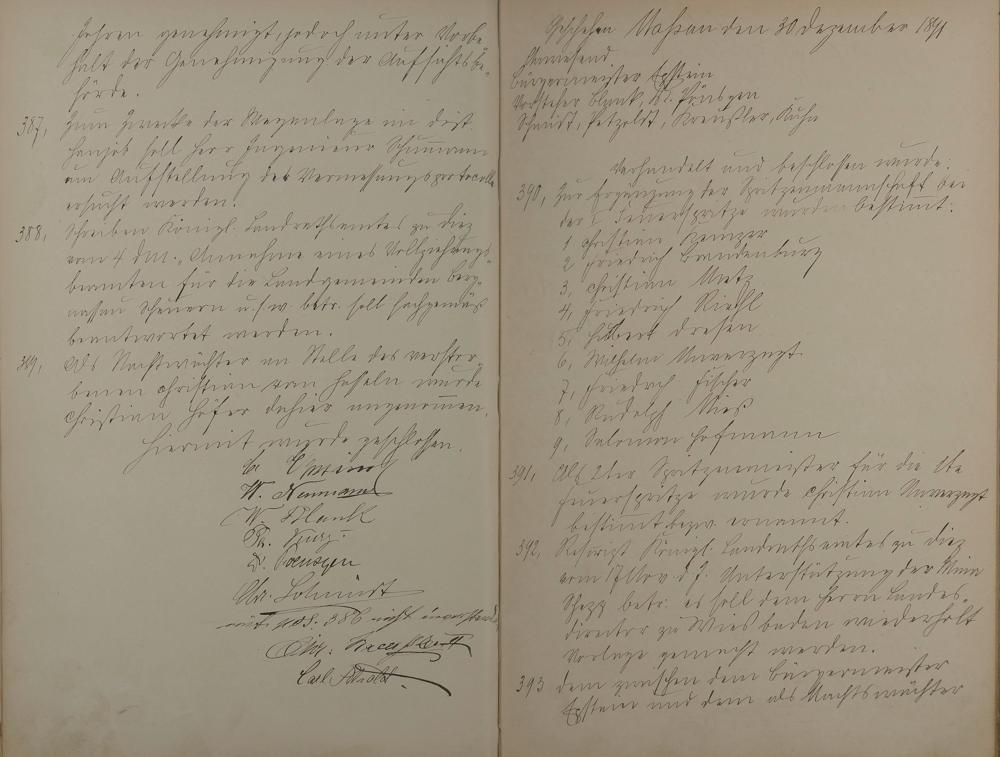 Jahren genehmigt, jedoch unter Vorbe-
halt der Genehmigung der Aufsichtsbe-
hörde.
387, Zum Zwecke der Weganlage im Dist.
soll Herr Ingenieur Schumann
um Aufstellung des Vermessungsprotocolls
ersucht werden.
388, Schreiben Königl. Landrathsamtes zu Diez
vom 4 dM. Annahme eines Vollziehungs-
beamten für die Landgemeinden Berg-
nassau Scheuern u.s.w. betr. soll sachgemäß
beantwortet werden.
389, Als Nachtwächter an Stelle des verstor-
benen Christian vom Hofeln wurde
Christian Höfer dahier angenommen.
Hiermit wurde geschlossen.
W. Neumann
W. Blank
Ph.
D. Poensgen
Ad. Schmidt
mit pos. 386 nicht einverstanden
Aug.
Carl
Geschehen Nassau den 30 Dezember 1891
Anwesend
Bürgermeister Epstein
Vorsteher Blank, D. Pönsgen
Schmidt, Petzoldt, Kreußler, Kuhn
Verhandelt und beschlossen wurde:
390, Zur Ergänzung der Spritzenmannschaft bei
der I Feuerspritze wurden bestimmt:
1 Christian
2 Friedrich Brandenburg
3, Christian Metz
4, Friedrich Riehl
5, Hubert Dresen
6, Wilhelm Unverzagt
7, Friedrich Fischer
8, Rudolph Mies
9, Salomon Hofmann
391, Als 2ter Spritzenmeister für die 1te
Feuerspritze wurde Christian Unverzagt
bestimmt bezw. ernannt.
392, Rescript Königl. Landrathsamtes zu Diez
vom 17 Nov. d. J. Unterstützung der Minna
betr. es soll dem Herrn Landes-
director zu Wiesbaden wiederholt
Vorlage gemacht werden.
393 dem zwischen dem Bürgermeister
Epstein und dem als Nachtwächter